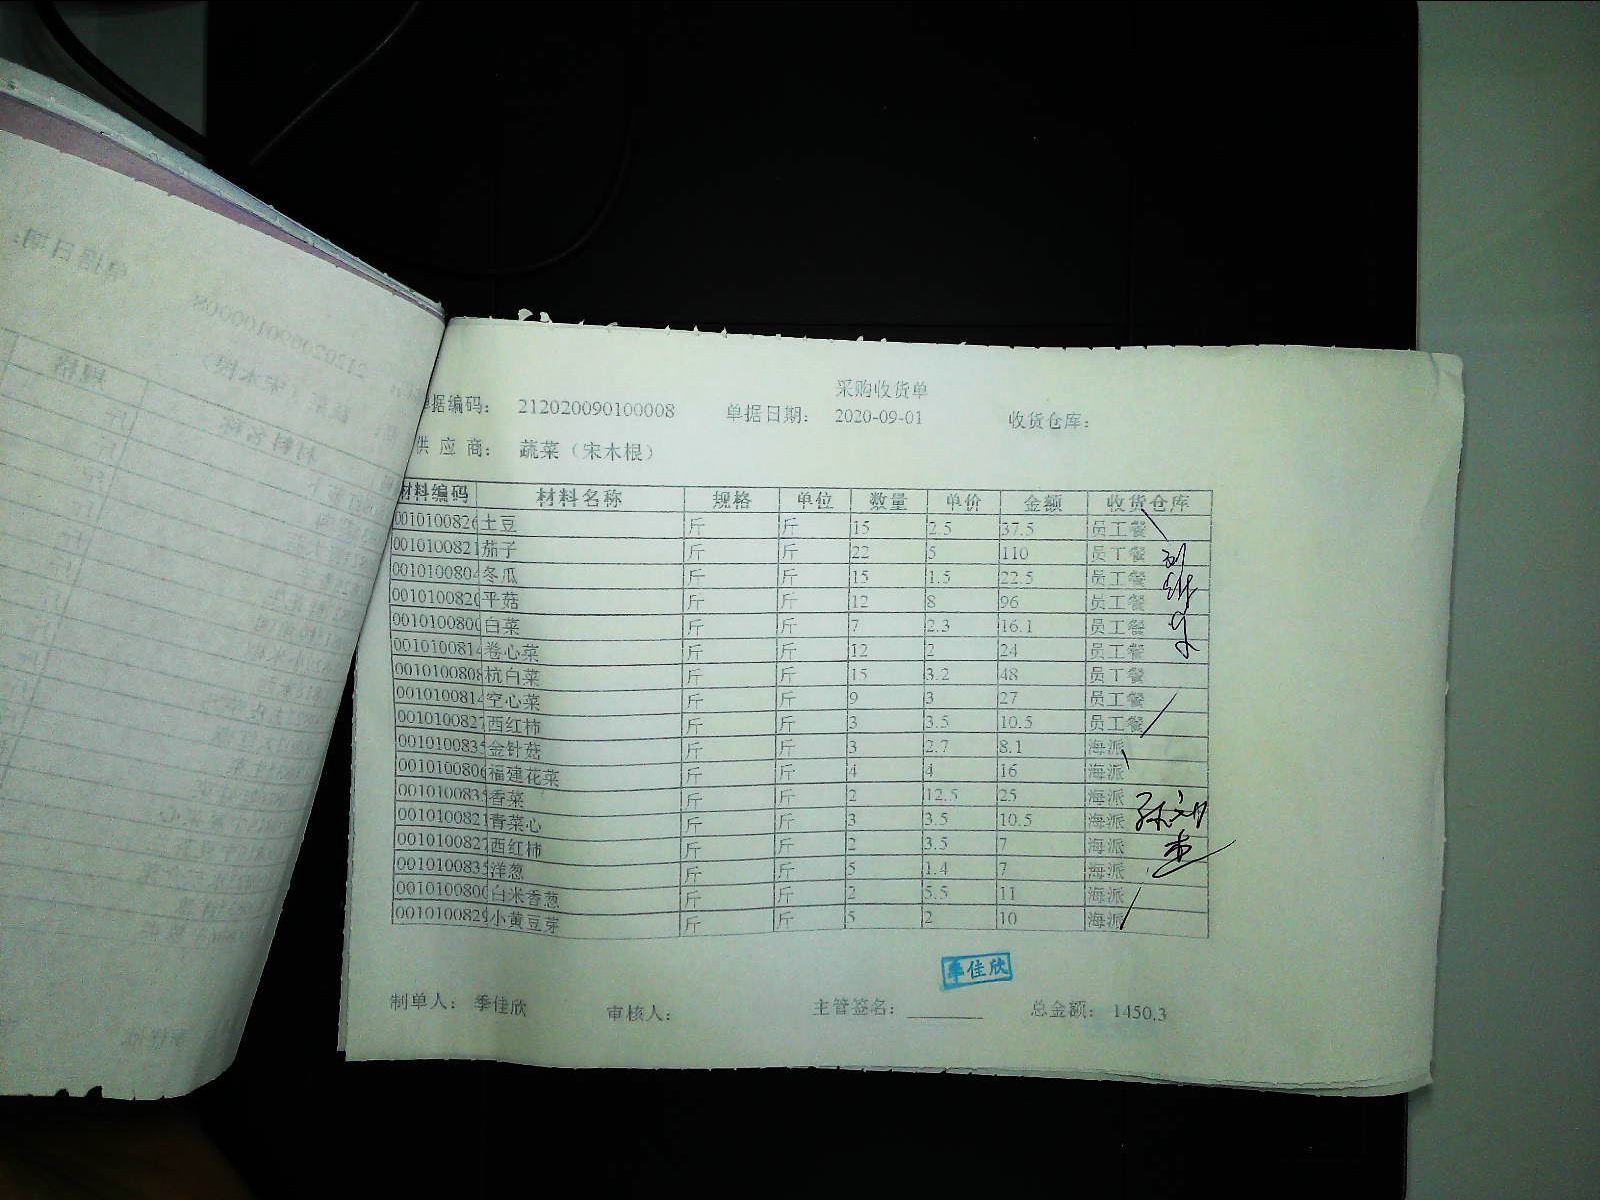 采购收货单
单据编码： 212020090100008 单据日期： 2020-09-01 收货仓库：
供 应 商： 蔬菜（宋木根）
材料编码 材料名称 规格 单位 数量 单价 金额 收货仓库
0010100826 土豆 斤 斤 15 2.5 37.5 员工餐
0010100821 茄子 斤 斤 22 5 110 员工餐
001010080 冬瓜 斤 斤 15 1.5 22.5 员工餐
0010100820 平菇 斤 斤 12 8 96 员工餐
0010100800 白菜 斤 斤 7 2.3 16.1 员工餐
0010100814 卷心菜 斤 斤 12 2 24 员工餐
0010100808 杭白菜 斤 斤 15 3.2 48 员工餐
0010100814 空心菜 斤 斤 9 3 27 员工餐
0010100827 西红柿 斤 斤 3 3.5 10.5 员工餐
001010083 金针菇 斤 斤 3 2.7 8.1 海派
0010100806 福建花菜 斤 斤 4 4 16 海派
001010083 香菜 斤 斤 2 12.5 25 海派
0010100821 青菜心 斤 斤 3 3.5 10.5 海派
0010100827 西红柿 斤 斤 2 3.5 7 海派
001010083 洋葱 斤 斤 5 1.4 7 海派
0010100800 白米香葱 斤 斤 2 5.5 11 海派
0010100829 小黄豆芽 斤 斤 5 2 10 海派
季佳欣
制单人： 季佳欣 审核人： 主管签名： 总金额： 1450.3